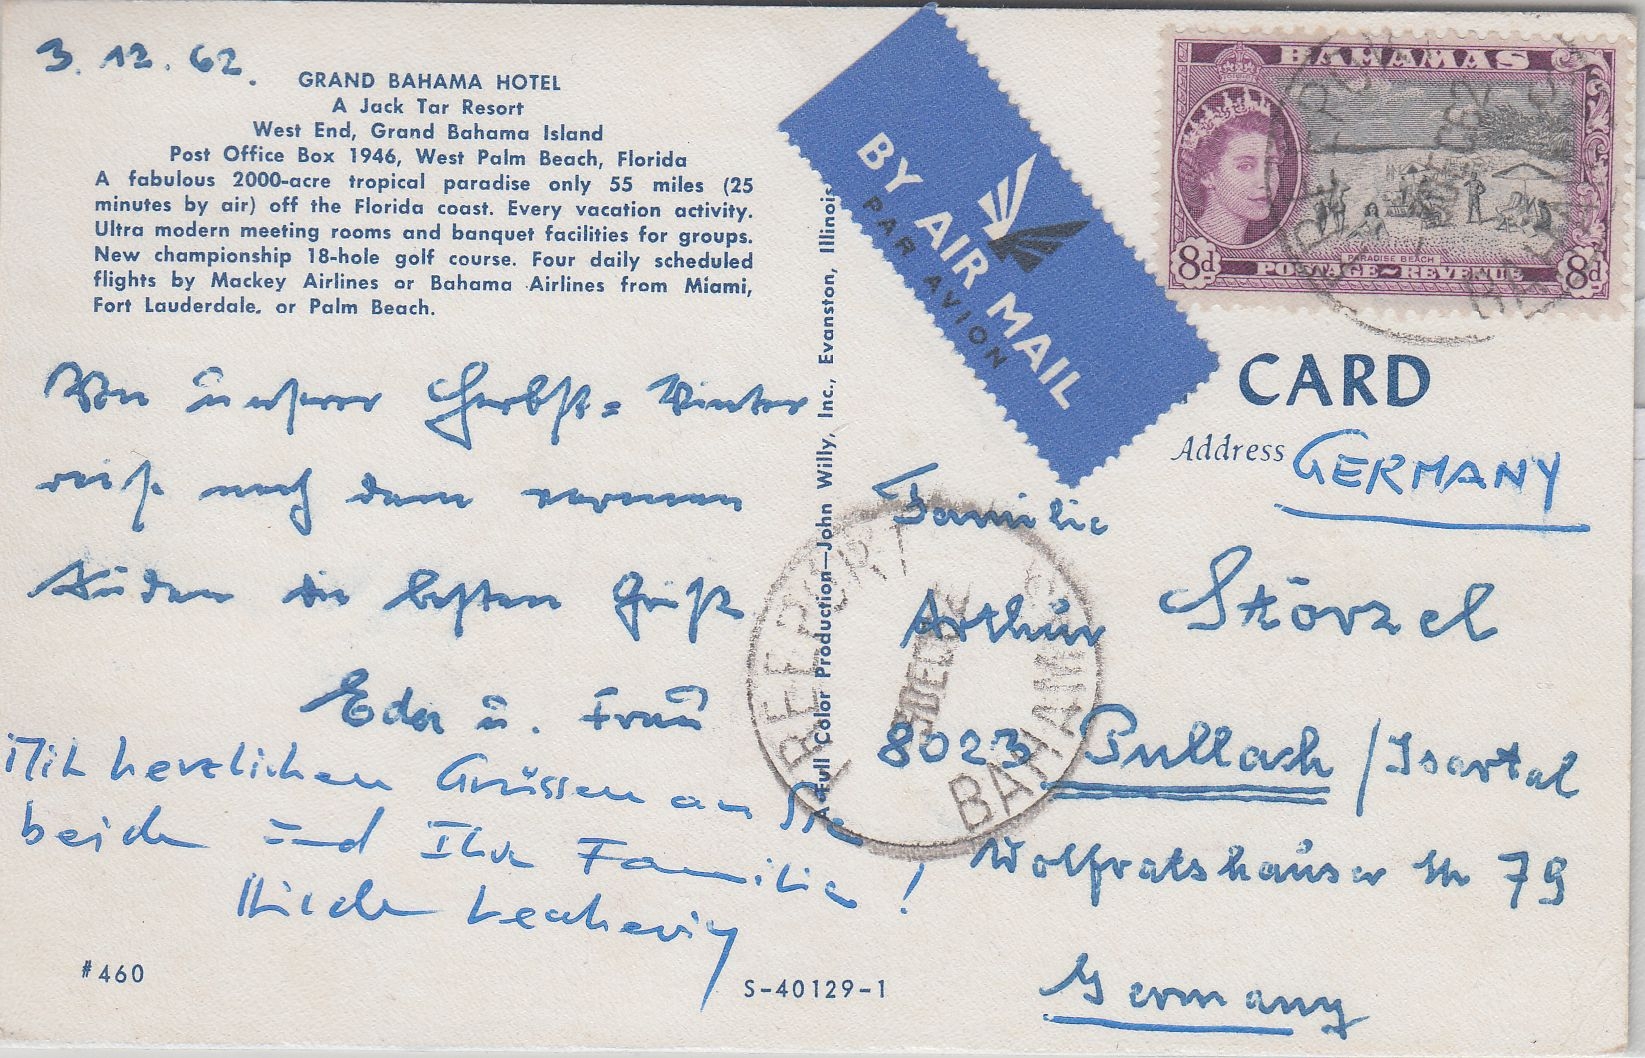 3. 12. 62.
GRAND BAHAMA HOTEL
A Jack Tar Resort
West End, Grand Bahama Island
Post Office Box 1946, West Palm Beach, Florida
A fabulous 2000-acre tropical paradise only 55 miles (25
minutes by air) off the Florida coast. Every vacation activity.
Ultra modern meeting rooms and banquet facilities for groups.
New championship 18-hole golf course. Four daily scheduled
flights by Mackey Airlines or Bahama Airlines from Miami,
Fort Lauderdale, or Palm Beach.
Von unserer Herbst= Winter
reise nach dem warmen
Süden die besten Grüße
Eder u. Frau
Mit herzlichen Grüssen an Sie
beide und Ihre Familie!
#460
S-40129-1
A Full Color Production—John Willy, Inc., Evanston, Illinois
BY AIR MAIL
PAR AVION
BAHAMAS
PARADISE BEACH
8d POSTAGE~REVENUE 8d
CARD
Address GERMANY
Familie
Arthur Störzel
8023 Pullach / Isartal
Wolfratshauser Str 79
Germany
FREEPORT
BAHAMAS